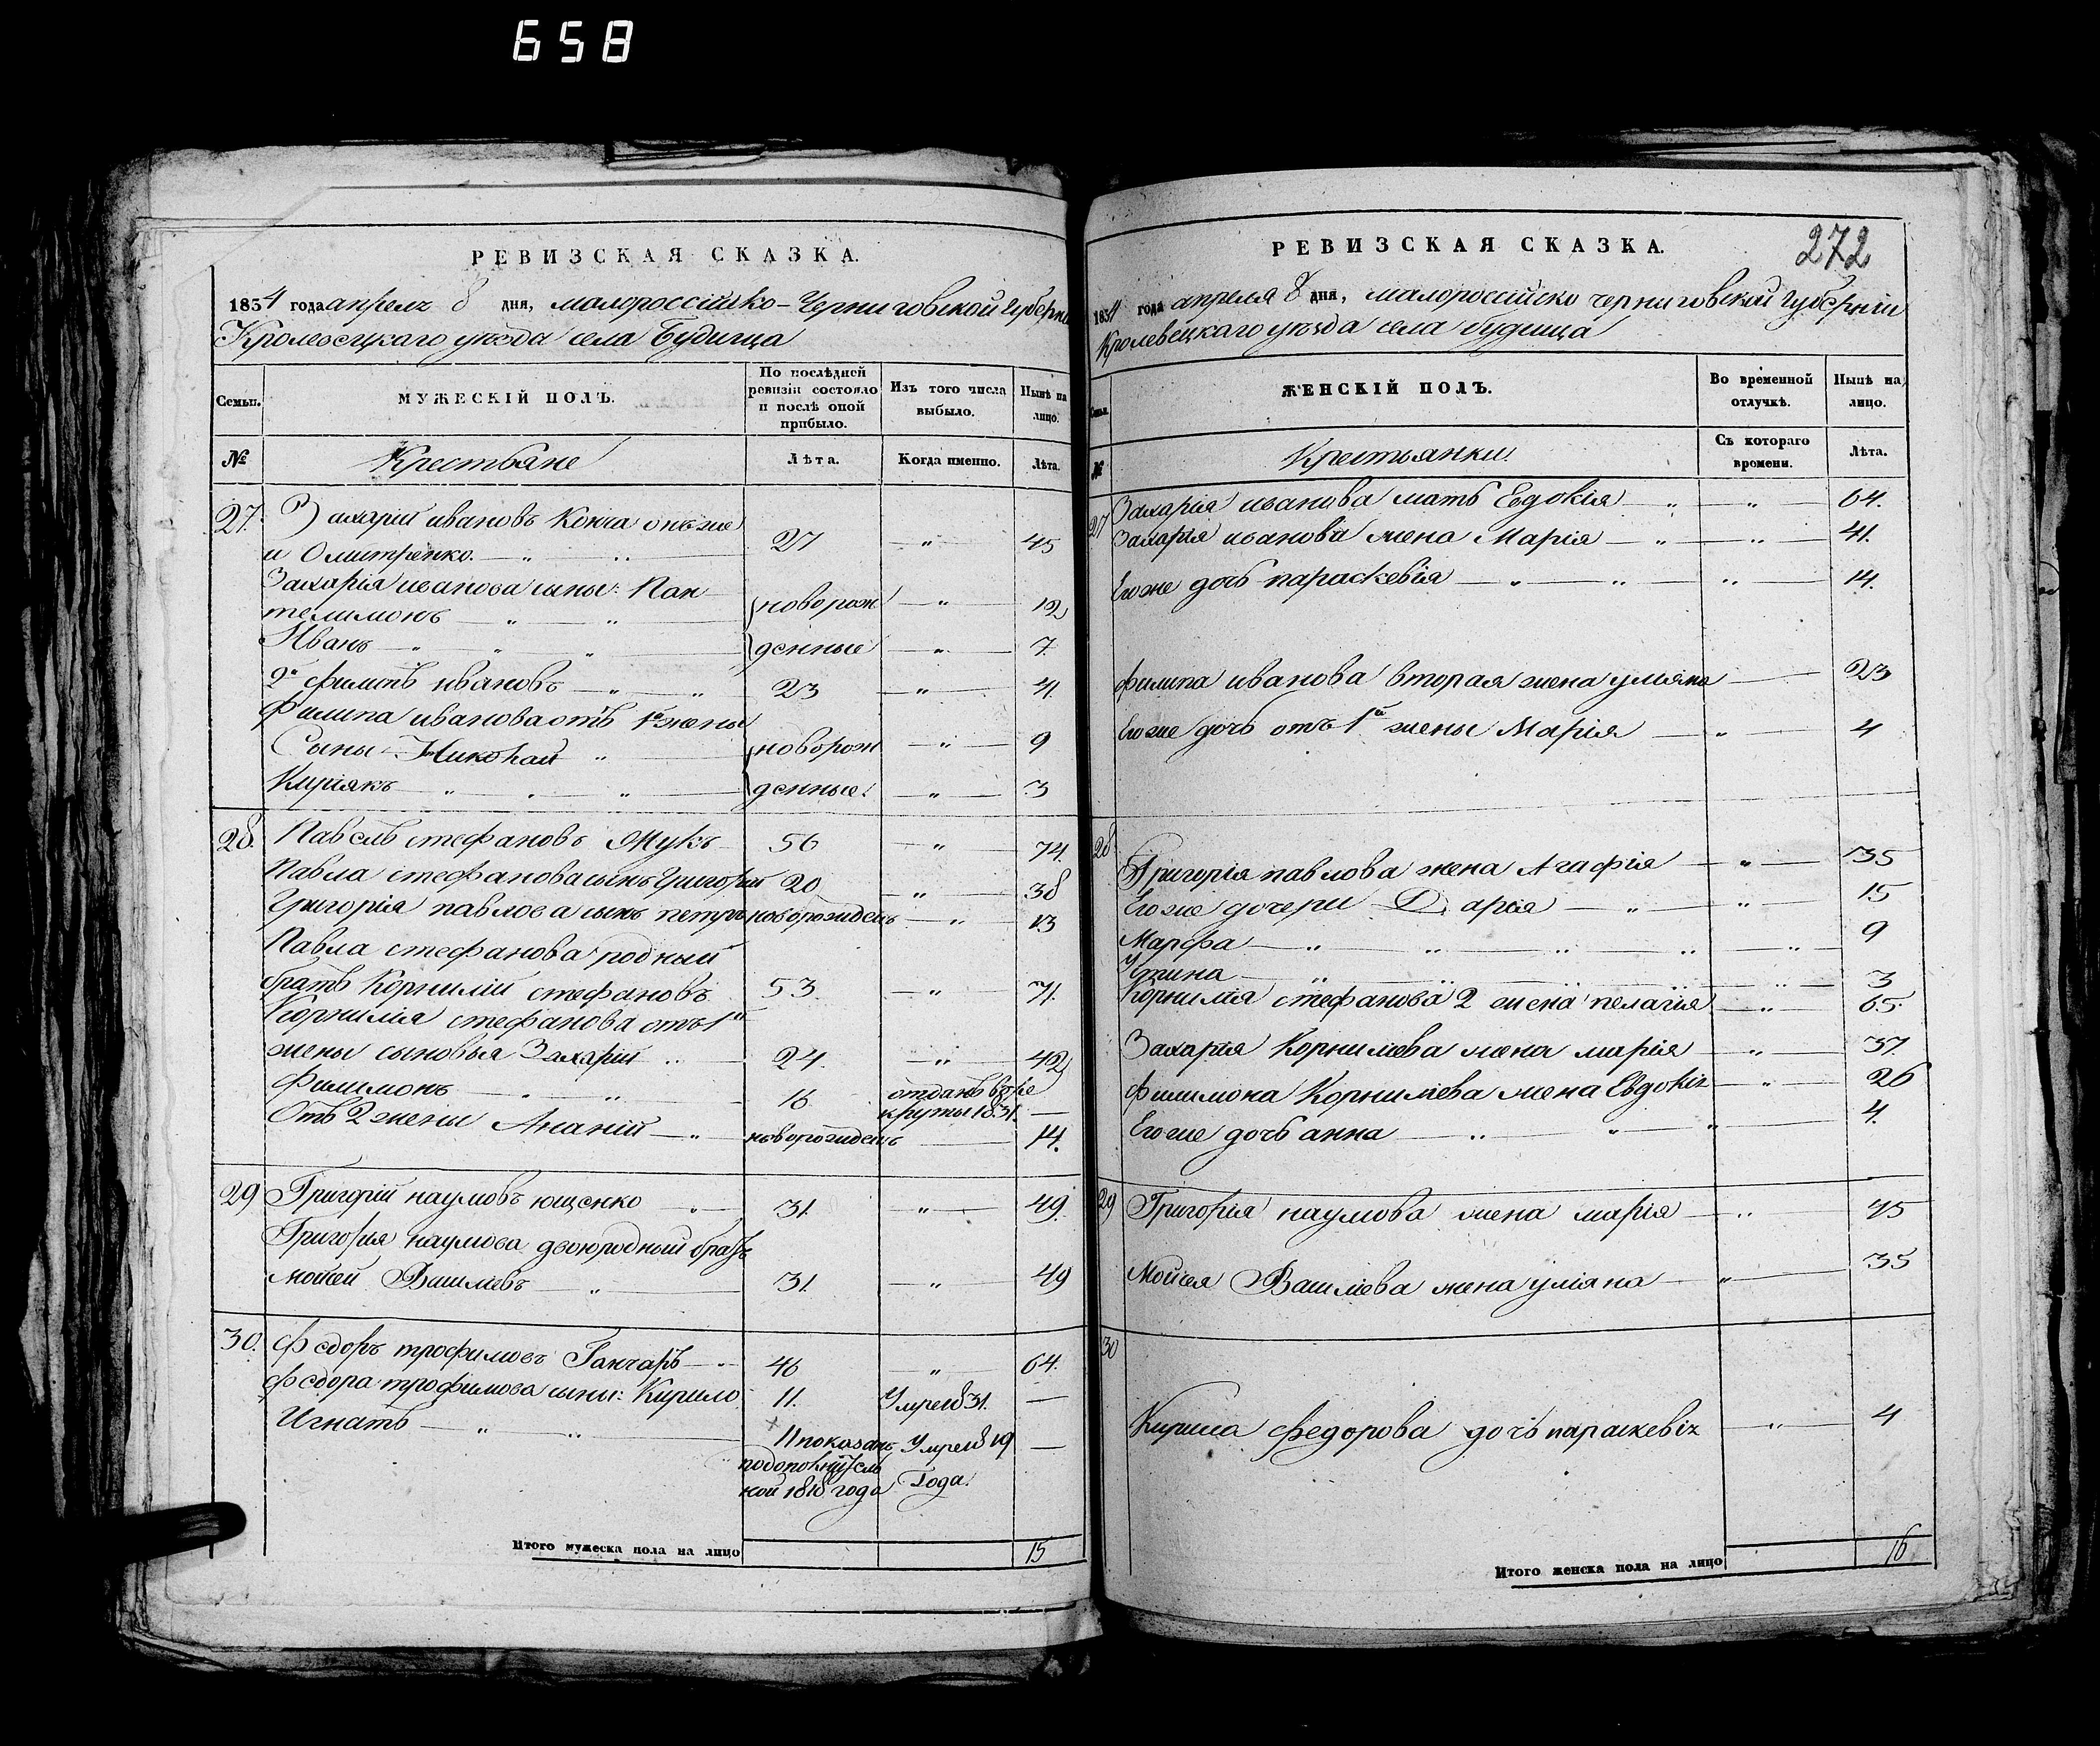 658
РЕВИЗСКАЯ СКАЗКА.
1834 года апреля 8 дня, малороссійско-Черниговской Губерни
Кролевецкаго уѣзда села Будища
Семьи.
МУЖЕСКІЙ ПОЛЪ.
По послѣдней ревизіи состояло и послѣ оной прибыло.
Изъ того числа выбыло.
Нынѣ на лицо.
№
Крестьяне
Лѣта.
Когда именно.
Лѣта.
27. Захарій ивановъ Кокча онъ же
и Омитренко. 27 " 45
Захарія иванова сыны: Пан
телимонъ новорож " 12
Иванъ денные " 7
2й филипъ ивановъ 23 " 41
Филипа иванова отъ 1й жены
Сыны Николай новорож " 9
Киріякъ денные " 3
28. Павелъ стефановъ Жукъ 56 " 74.
Павла стефанова сынъ Григорій 20 " 38
Григорія павлова сынъ петръ новорожденъ " 13
Павла стефанова родный
братъ Корнилій стефановъ 53. " 71.
Корнилія стефанова отъ 1й
жены сыновья Захарій 24. " 42
Филимонъ 16 отданъ въ ре
круты 1831. —
Отъ 2 жены Ананій новорожденъ 14.
29 Григорій наумовъ ющенко 31. " 49.
Григорія наумова двоюродный братъ
мойсей Вашлѣевъ 31. " 49
30. Федоръ трофимовъ Ганчаръ 46 " 64.
Федора трофимова сыны: Кирило 11. Умре 1831. —
Игнатъ 11 показанъ Умре 1819 —
подопокнij сль
кой 1818 года Года.
Итого мужеска пола на лицо 15
РЕВИЗСКАЯ СКАЗКА.
272
1834 года апреля 8 дня, малороссійско черниговской Губерніи
Кролевецкаго уѣзда села будища
Семьи.
ЖЕНСКІЙ ПОЛЪ.
Во временной отлучкѣ.
Нынѣ на лицо.
№
Крестьянки.
Съ котораго времени.
Лѣта.
27 Захарія иванова мать Евдокія " 64.
Захарія иванова жена Марія " 41.
Его же дочь параскевія " 14.
филипа иванова вторая жена уліяна 23
Его же дочь отъ 1й жены Марія " 4
28 Григорія павлова жена Агафія " 35
Его же дочери Дарія " 15
Марфа " 9
Устина " 3
Корнилія стефанова 2 жена пелагія " 65.
Захарія Корниліева жена марія " 37.
Филимона Корниліева жена Евдокія " 26
Его же дочь анна " 4.
29 Григорія наумова жена марія " 45
Мойсея Вашлѣева жена уліяна " 35
30
Кирила Федорова дочь параскевія " 4
Итого женска пола на лицо 16